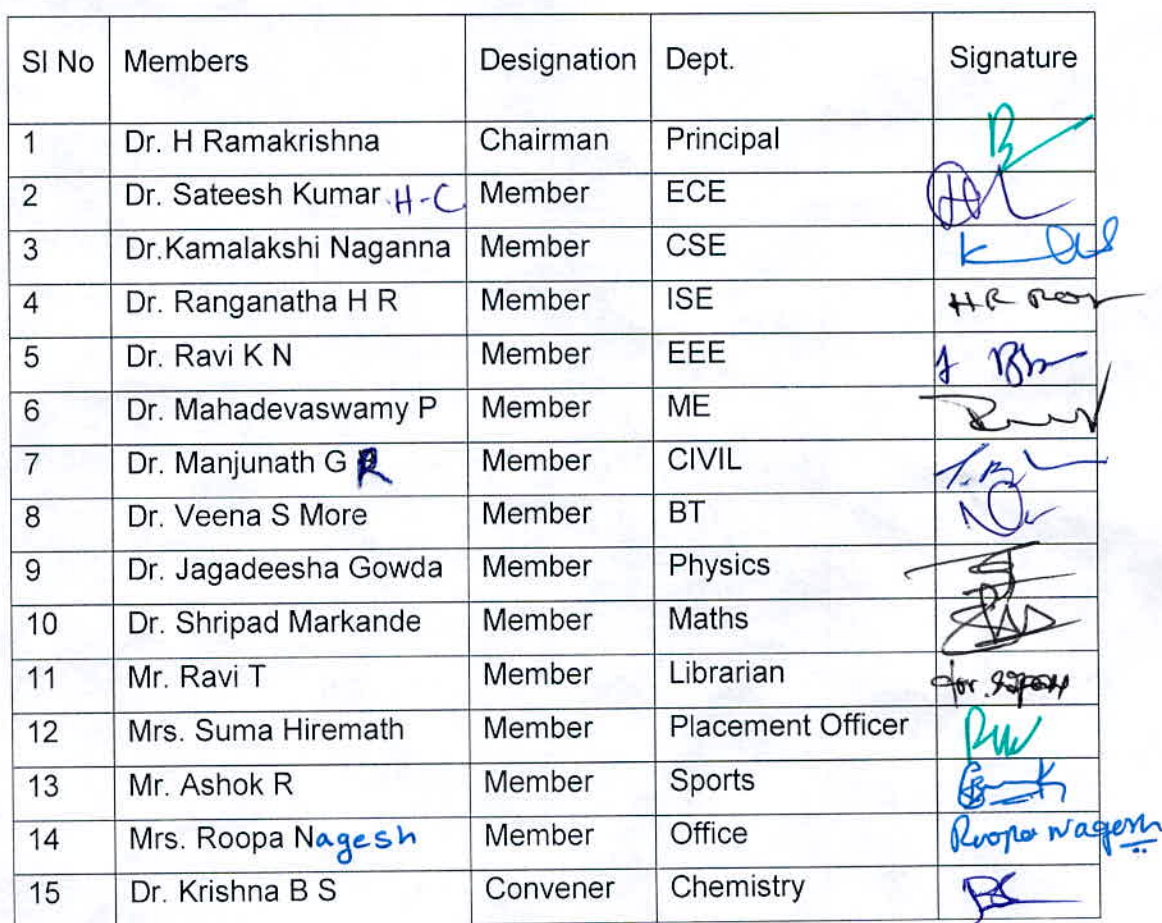 SI No Members Designation Dept. Signature
1 Dr. H Ramakrishna Chairman Principal
2 Dr. Sateesh Kumar H-C Member ECE
3 Dr.Kamalakshi Naganna Member CSE
4 Dr. Ranganatha H R Member ISE HR
5 Dr. Ravi K N Member EEE
6 Dr. Mahadevaswamy P Member ME
7 Dr. Manjunath G R Member CIVIL
8 Dr. Veena S More Member BT
9 Dr. Jagadeesha Gowda Member Physics
10 Dr. Shripad Markande Member Maths
11 Mr. Ravi T Member Librarian for.
12 Mrs. Suma Hiremath Member Placement Officer
13 Mr. Ashok R Member Sports
14 Mrs. Roopa Nagesh Member Office Roopa Nagesh
15 Dr. Krishna B S Convener Chemistry